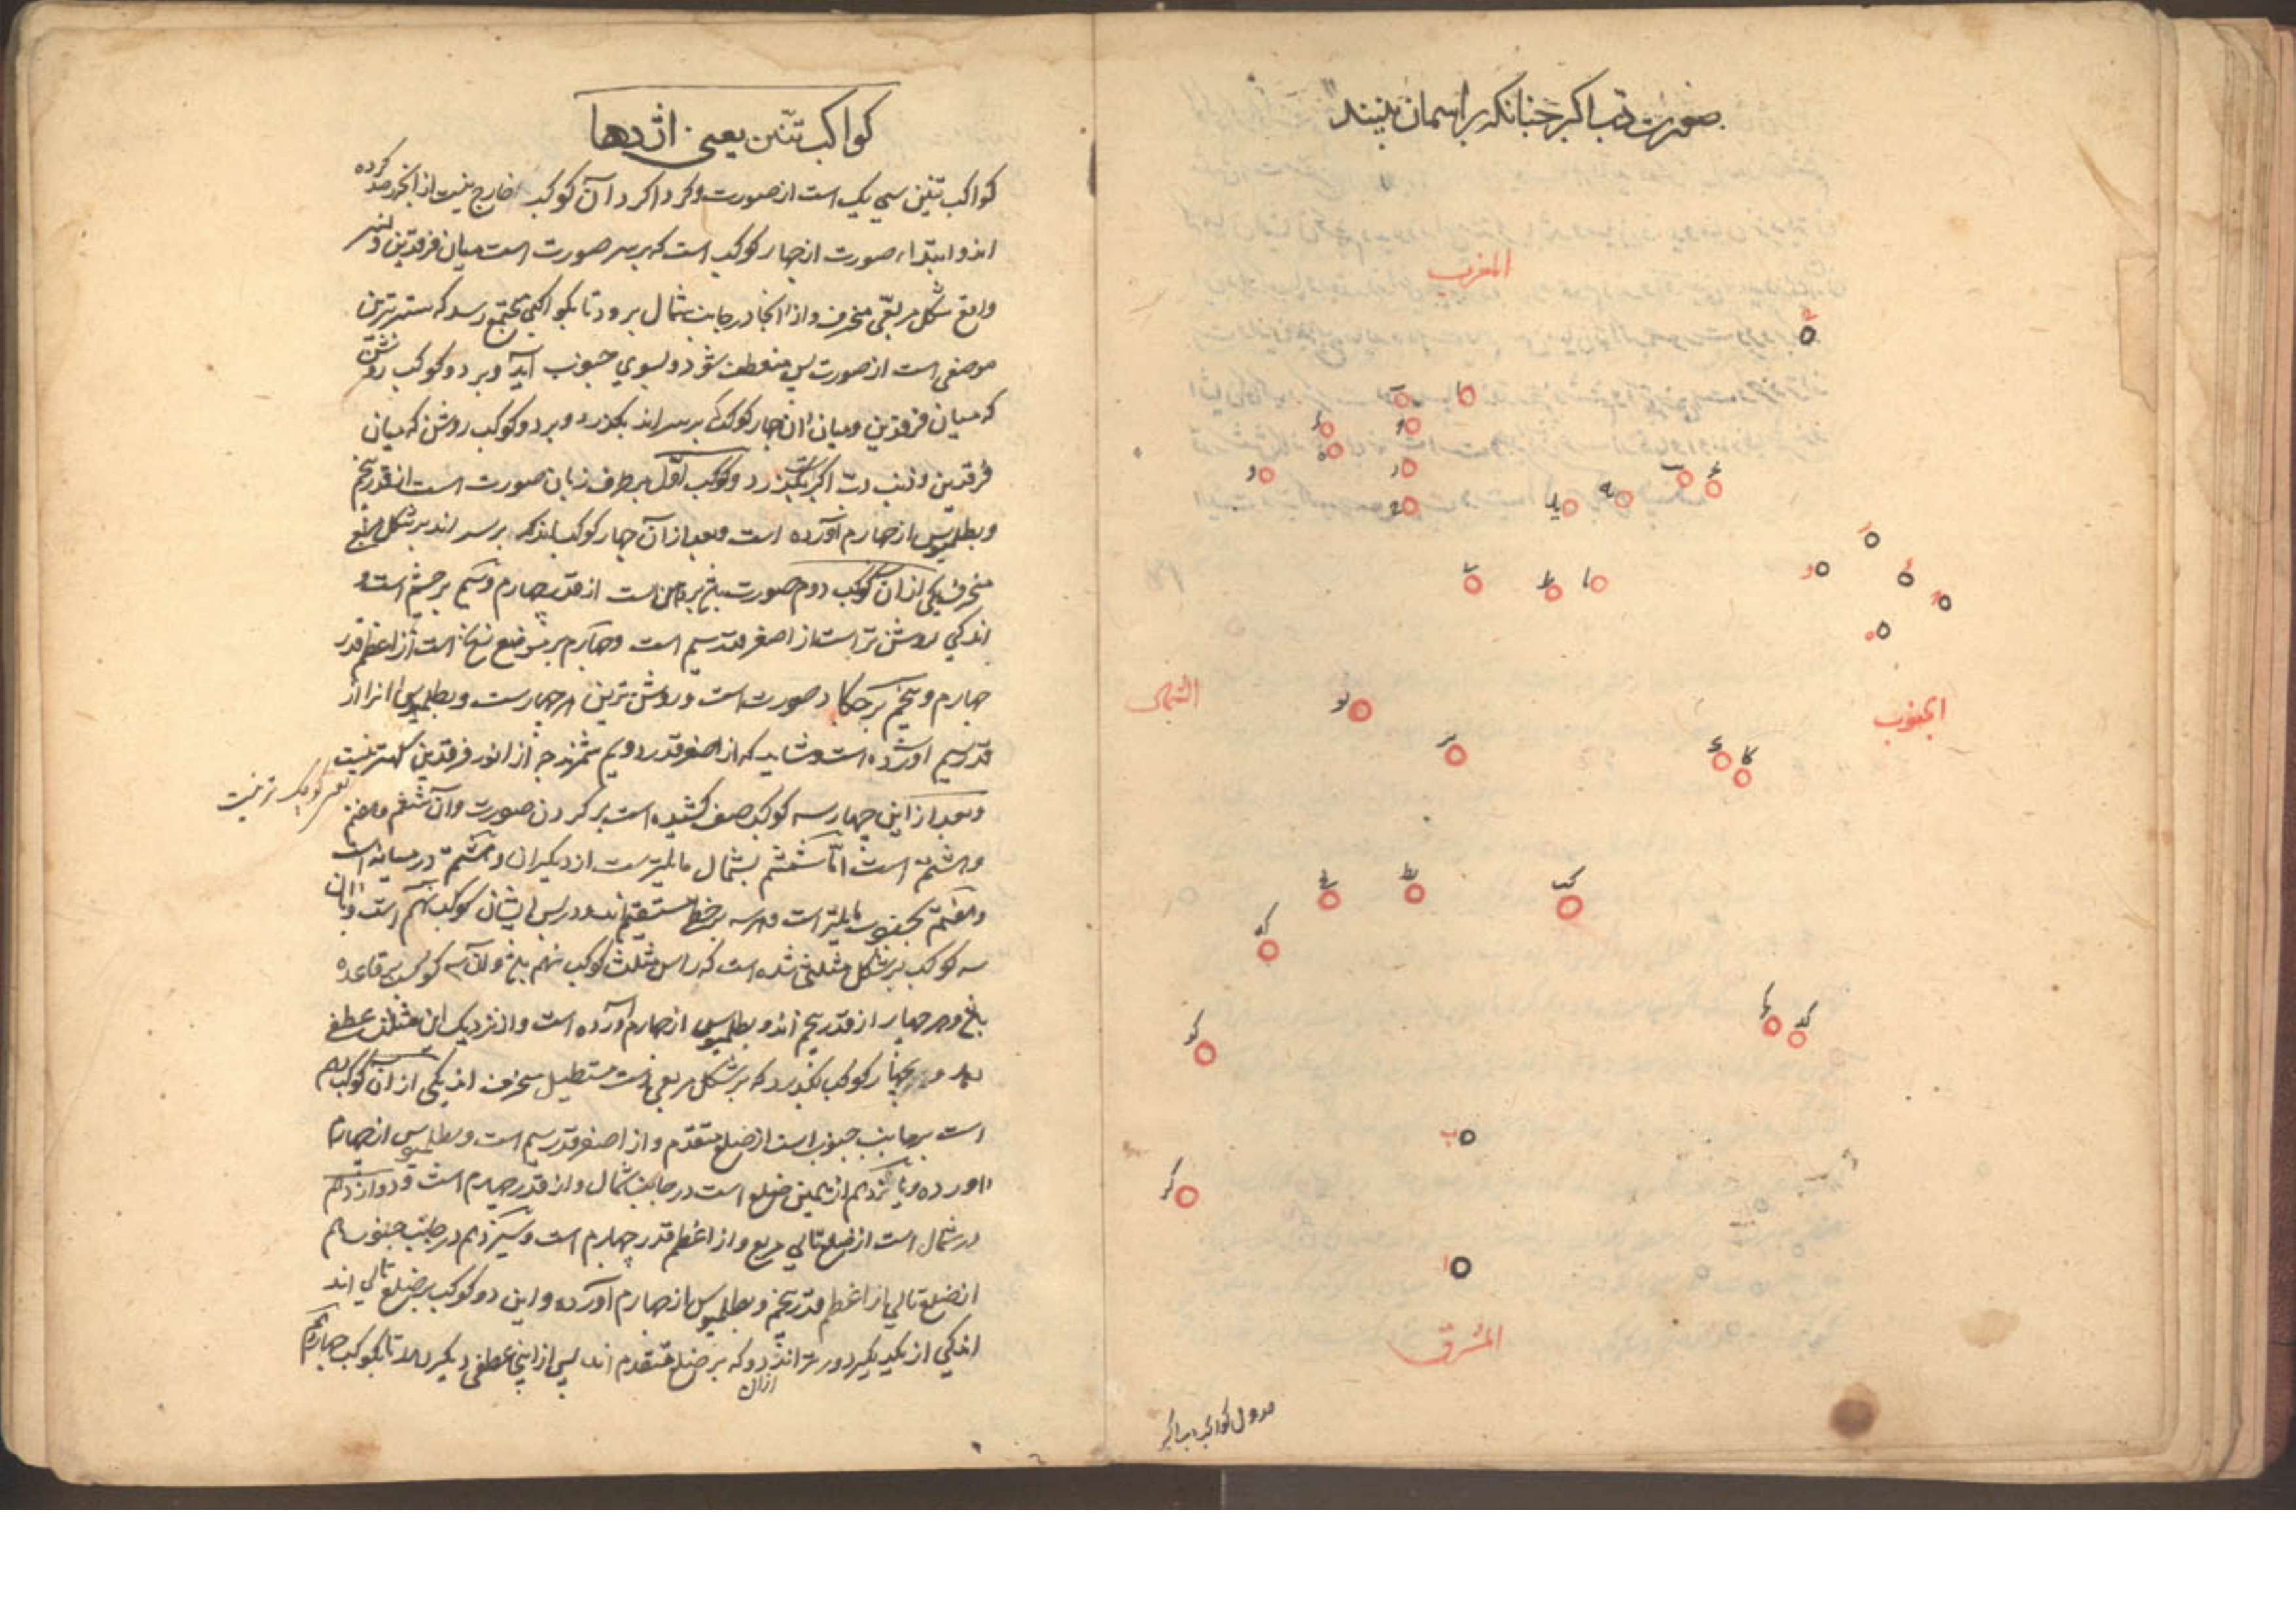 صورت دب اکبر چنانکه بر آسمان بینند
المغرب
الشمال
الجنوب
المشرق
جدول کواکب دب اکبر
کواکب تنین یعنی اژدها
کواکب تنین سی یک است از صورت و کرداکرد آن کوکب خارج نیست از انچه رصد کرده
اند و ابتداء صورت از چهار کوکب است که بر سر صورت است میان فرقدین و نسر
واقع شکل مربعی منحرف و از انجا در جانب شمال برود تا بکواکبی مجتمع رسد که ستبرترین
موضعی است از صورت پس منعطف شود و بسوی جنوب آید و بر دو کوکب روشن
که میان فرقدین و میان ان چهار کوکب که بر سر اند بکذرد و بر دو کوکب روشن که میان
فرقدین و ذنب دب اکبر اند بکذرد و کوکب اول بر طرف زبان صورت است از قدر پنجم
و بطلمیوس از چهارم آورده است و بعد از آن چهار کوکب اند که بر سر اند بر شکل مربع
منحرف یکی از ان کوکب دوم صورت است از قدر چهارم و سیم بر چشم است و
اندکی روشن تر است از اصغر قدر سیم است و چهارم بر موضع است از اعظم قدر
چهارم و پنجم بر صورت است و روشن ترین هر چهار است و بطلمیوس انرا از
قدر سیم آورده است و شاید که از اصغر قدر دویم شمرند چه از انور فرقدین کمتر نیست
کوچک تر نیست
و بعد از این چهار سه کوکب صف کشیده است بر کردن صورت و آن ششم و هفتم
و هشتم است اما ششم بشمال مایلتر است از دیکران و هشتم در میانه است
و هفتم بجنوب مایلتر است و هر سه بر خط مستقیم اند و در پس ایشان کوکب نهم است و بان
سه کوکب بر شکل مثلثی شده است که راس مثلث کوکب نهم و آن سه کوکب قاعده
و هر چهار از قدر پنجم اند و بطلمیوس از چهارم آورده است و از نزدیک این مثلث عطفی
و بچهار کوکب بکذرد که بر شکل مربعی است مستطیل منحرف اند یکی از ان کوکب دهم
است بر جانب جنوب است از ضلع متقدم و از اصغر قدر سیم است و بطلمیوس از چهارم
اورده و یازدهم از همین ضلع است در جانب شمال و از قدر چهارم است و دوازدهم
در شمال است از ضلع تالی مربع و از اعظم قدر چهارم است و سیزدهم در جانب جنوب هم
از ضلع تالی از اعظم قدر پنجم و بطلمیوس از چهارم آورده و این دو کوکب بر ضلع تالی اند
اندکی از یکدیکر دورتر اند از ان دو که بر ضلع متقدم اند پس از این عطفی دیکر تا بکوکب چهاردهم